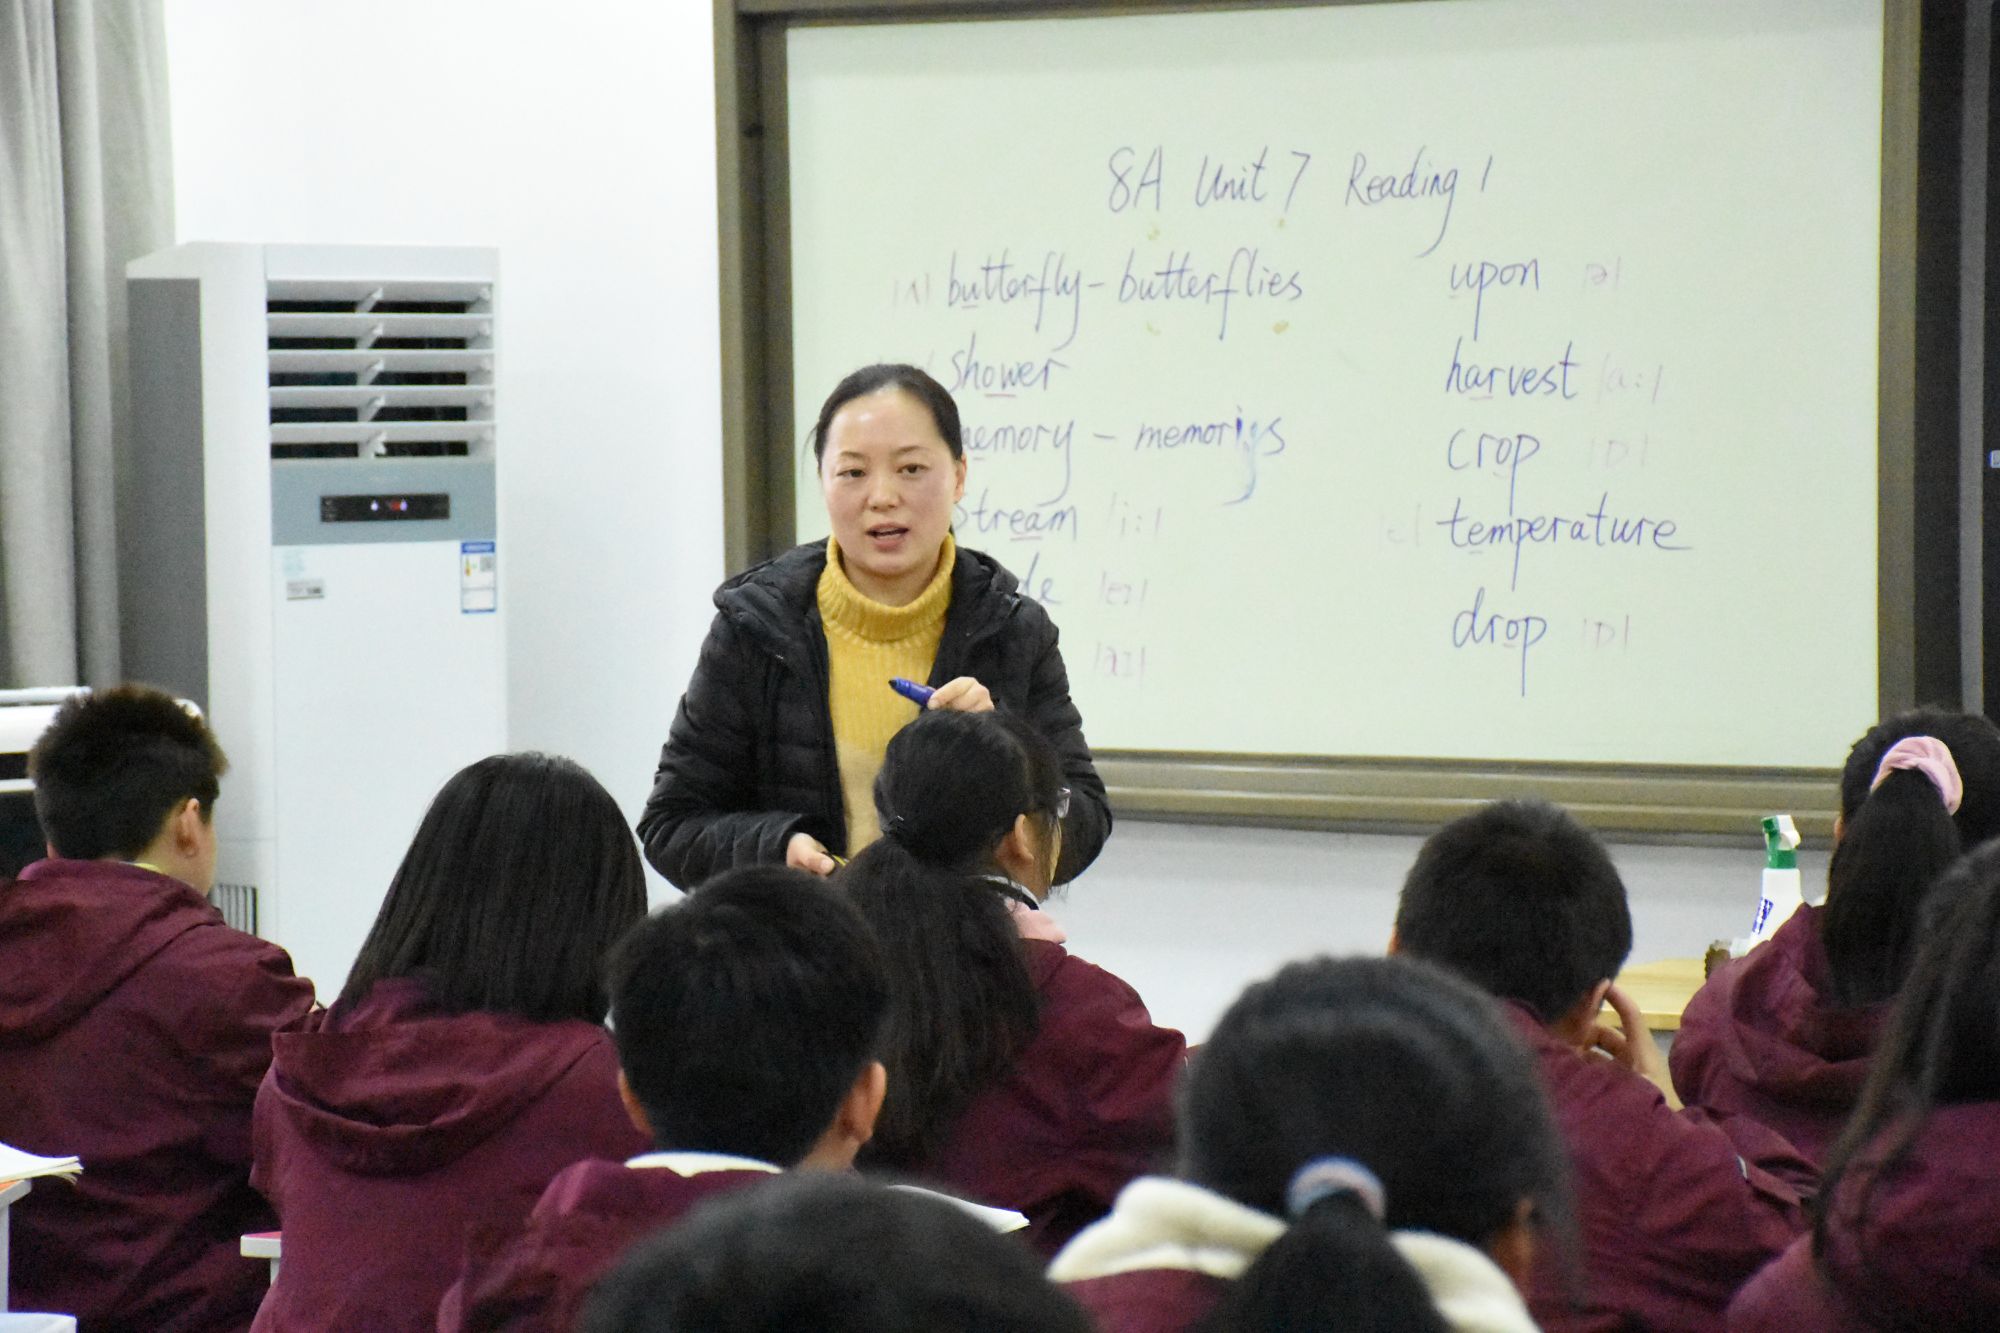 8A Unit 7 Reading 1
/ʌ/ butterfly - butterflies
shower
memory - memoriys
stream /i:/
/eɪ/
/aɪ/
upon /ə/
harvest /ɑ:/
crop /ɒ/
/e/ temperature
drop /ɒ/